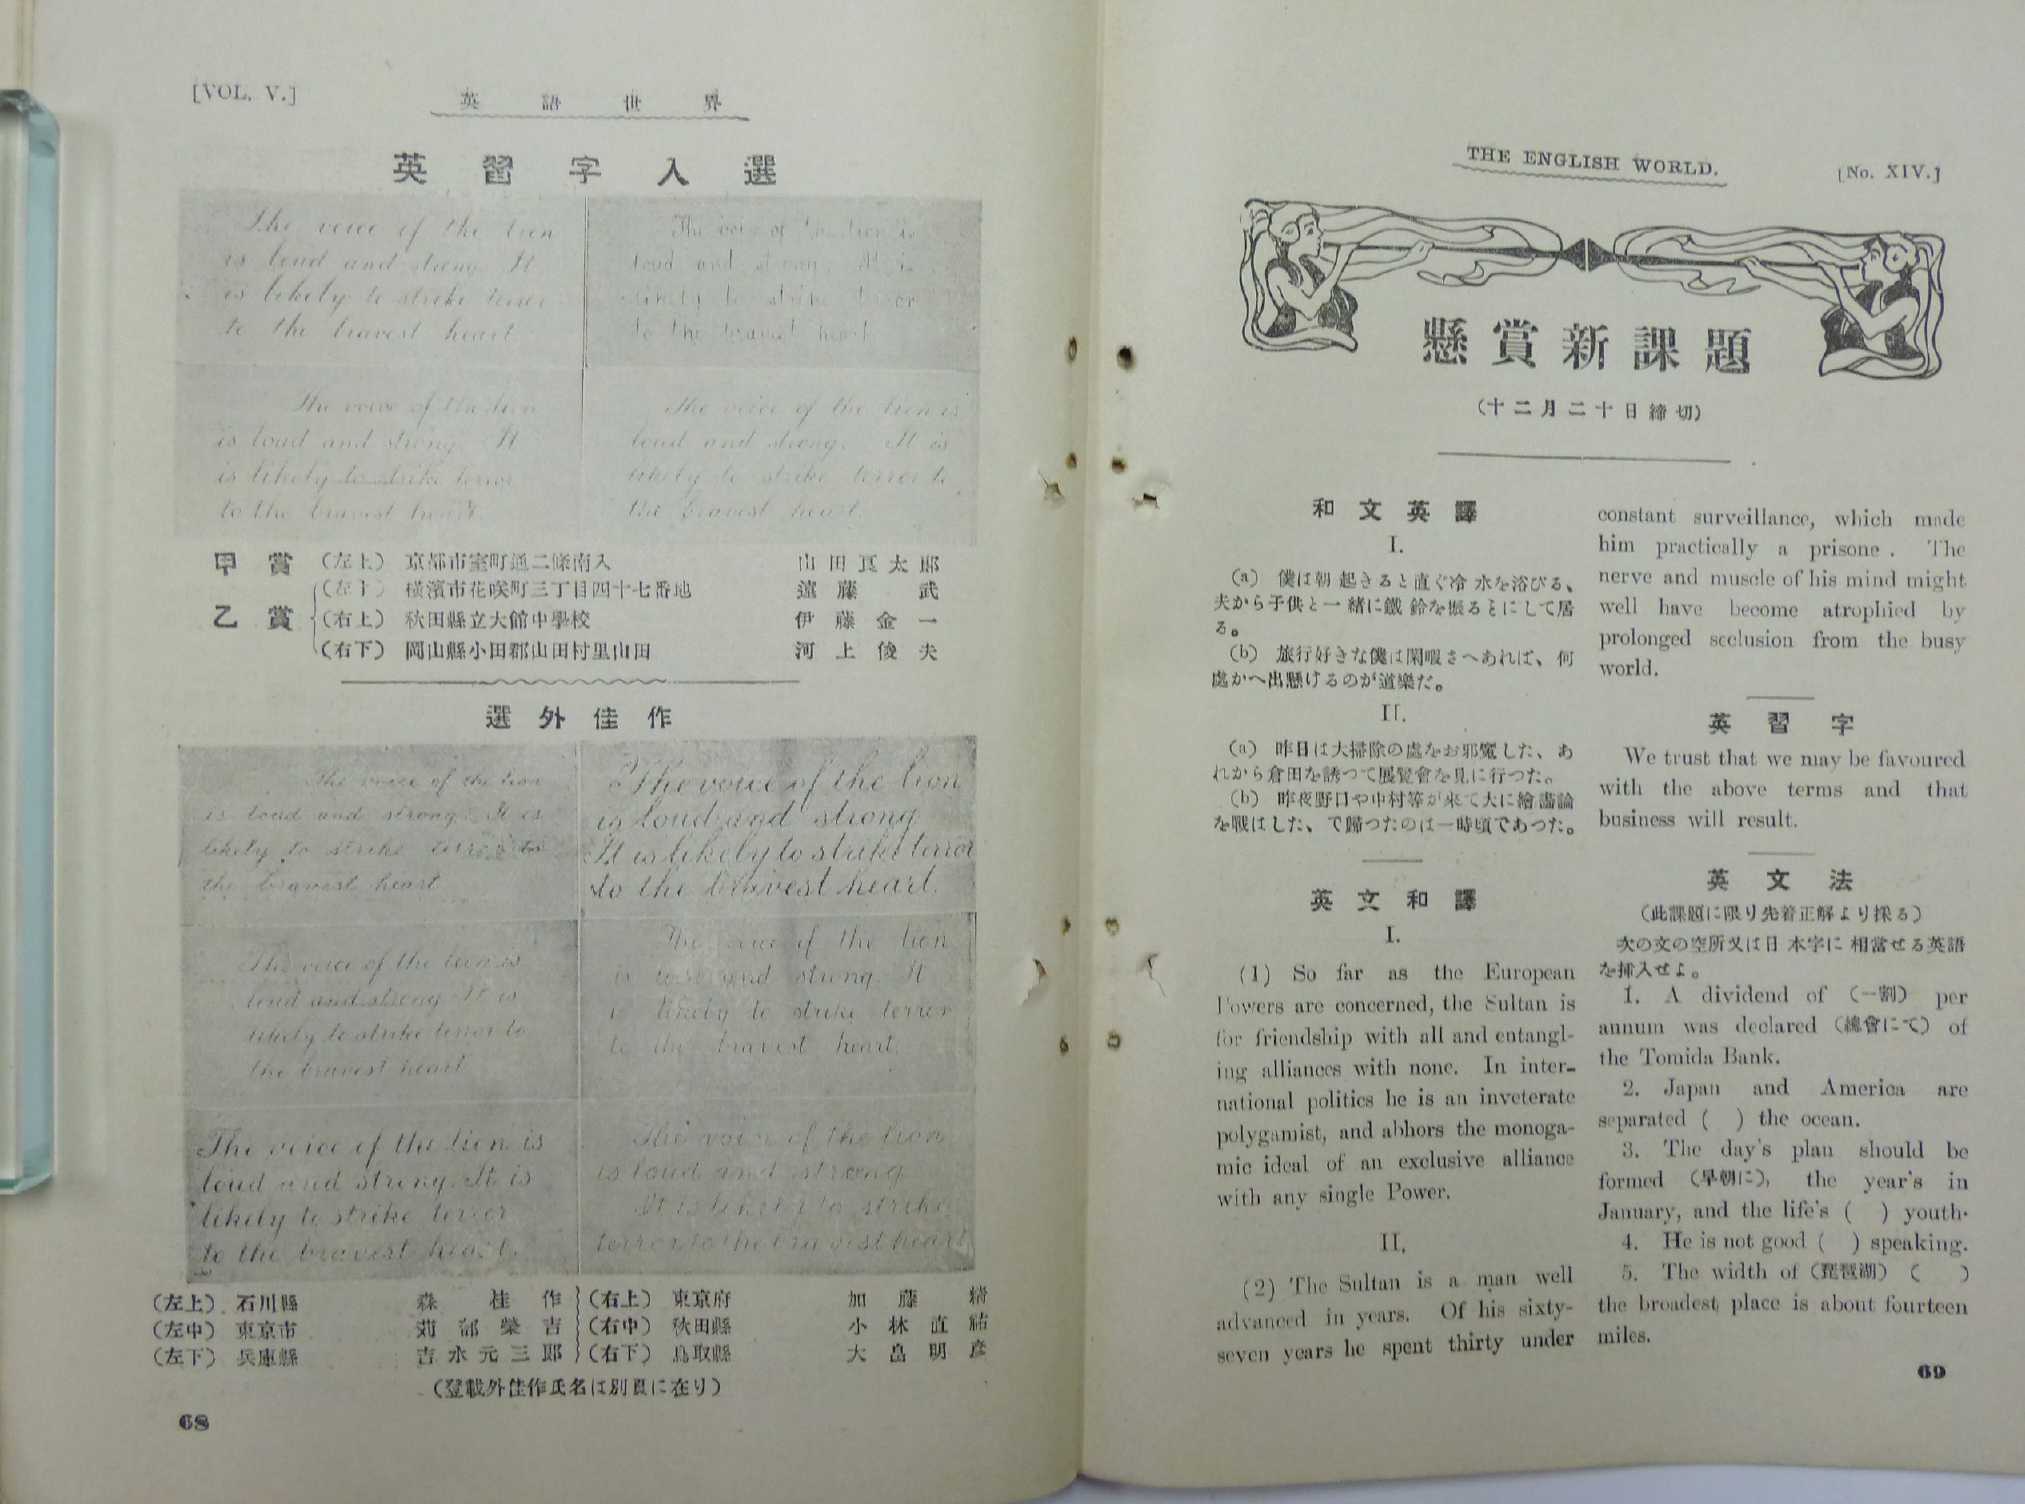 [VOL. V.]
英語世界
英習字入選
The voice of the lion
is loud and strong. It
is likely to strike terror
to the bravest heart.
The voice of the lion is
loud and strong. It is
likely to strike terror
to the bravest heart.
The voice of the lion
is loud and strong. It
is likely to strike terror
to the bravest heart.
The voice of the lion is
loud and strong. It is
likely to strike terror to
the bravest heart.
甲賞 (左上) 京都市室町通二條南入 山田眞太郎
(左下) 横濱市花咲町三丁目四十七番地 遠藤武
乙賞 (右上) 秋田縣立大館中學校 伊藤金一
(右下) 岡山縣小田郡山田村里山田 河上俊夫
選外佳作
The voice of the lion
is loud and strong. It is
likely to strike terror to
the bravest heart
The voice of the lion
is loud and strong
It is likely to strike terror
to the bravest heart.
The voice of the lion is
loud and strong. It is
likely to strike terror to
the bravest heart
The voice of the lion
is loud and strong. It
is likely to strike terror
to the bravest heart.
The voice of the lion is
loud and strong. It is
likely to strike terror
to the bravest heart.
The voice of the lion
is loud and strong
It is likely to strike
terror to the bravest heart
(左上) 石川縣 森桂作 (右上) 東京府 加藤
(左中) 東京市 苅部榮吉 (右中) 秋田縣 小林直
(左下) 兵庫縣 吉水元三郎 (右下) 鳥取縣 大畠明彦
(登載外佳作氏名は別頁に在り)
68
THE ENGLISH WORLD.
[No. XIV.]
懸賞新課題
(十二月二十日締切)
和文英譯
I.
(a) 僕は朝起きると直ぐ冷水を浴びる、
夫から子供と一緒に鐵鈴を振ることにして居
る。
(b) 旅行好きな僕は閑暇さへあれば、何
處かへ出懸けるのが道樂だ。
II.
(a) 昨日は大掃除の處をお邪魔した、あ
れから倉田を誘つて展覽會を見に行つた。
(b) 昨夜野口や中村等が來て大に繪畵論
を戰はした、で歸つたのは一時頃であつた。
英文和譯
I.
(1) So far as the European
Powers are concerned, the Sultan is
for friendship with all and entangl-
ing alliances with none. In inter-
national politics he is an inveterate
polygamist, and abhors the monoga-
mic ideal of an exclusive alliance
with any single Power.
II.
(2) The Sultan is a man well
advanced in years. Of his sixty-
seven years he spent thirty under
constant surveillance, which made
him practically a prisone . The
nerve and muscle of his mind might
well have become atrophied by
prolonged seclusion from the busy
world.
英習字
We trust that we may be favoured
with the above terms and that
business will result.
英文法
(此課題に限り先着正解より採る)
次の文の空所又は日本字に相當せる英語
を挿入せよ。
1. A dividend of (一割) per
annum was declared (總會にて) of
the Tomida Bank.
2. Japan and America are
separated ( ) the ocean.
3. The day's plan should be
formed (早朝に), the year's in
January, and the life's ( ) youth.
4. He is not good ( ) speaking.
5. The width of (琵琶湖) ( )
the broadest place is about fourteen
miles.
69